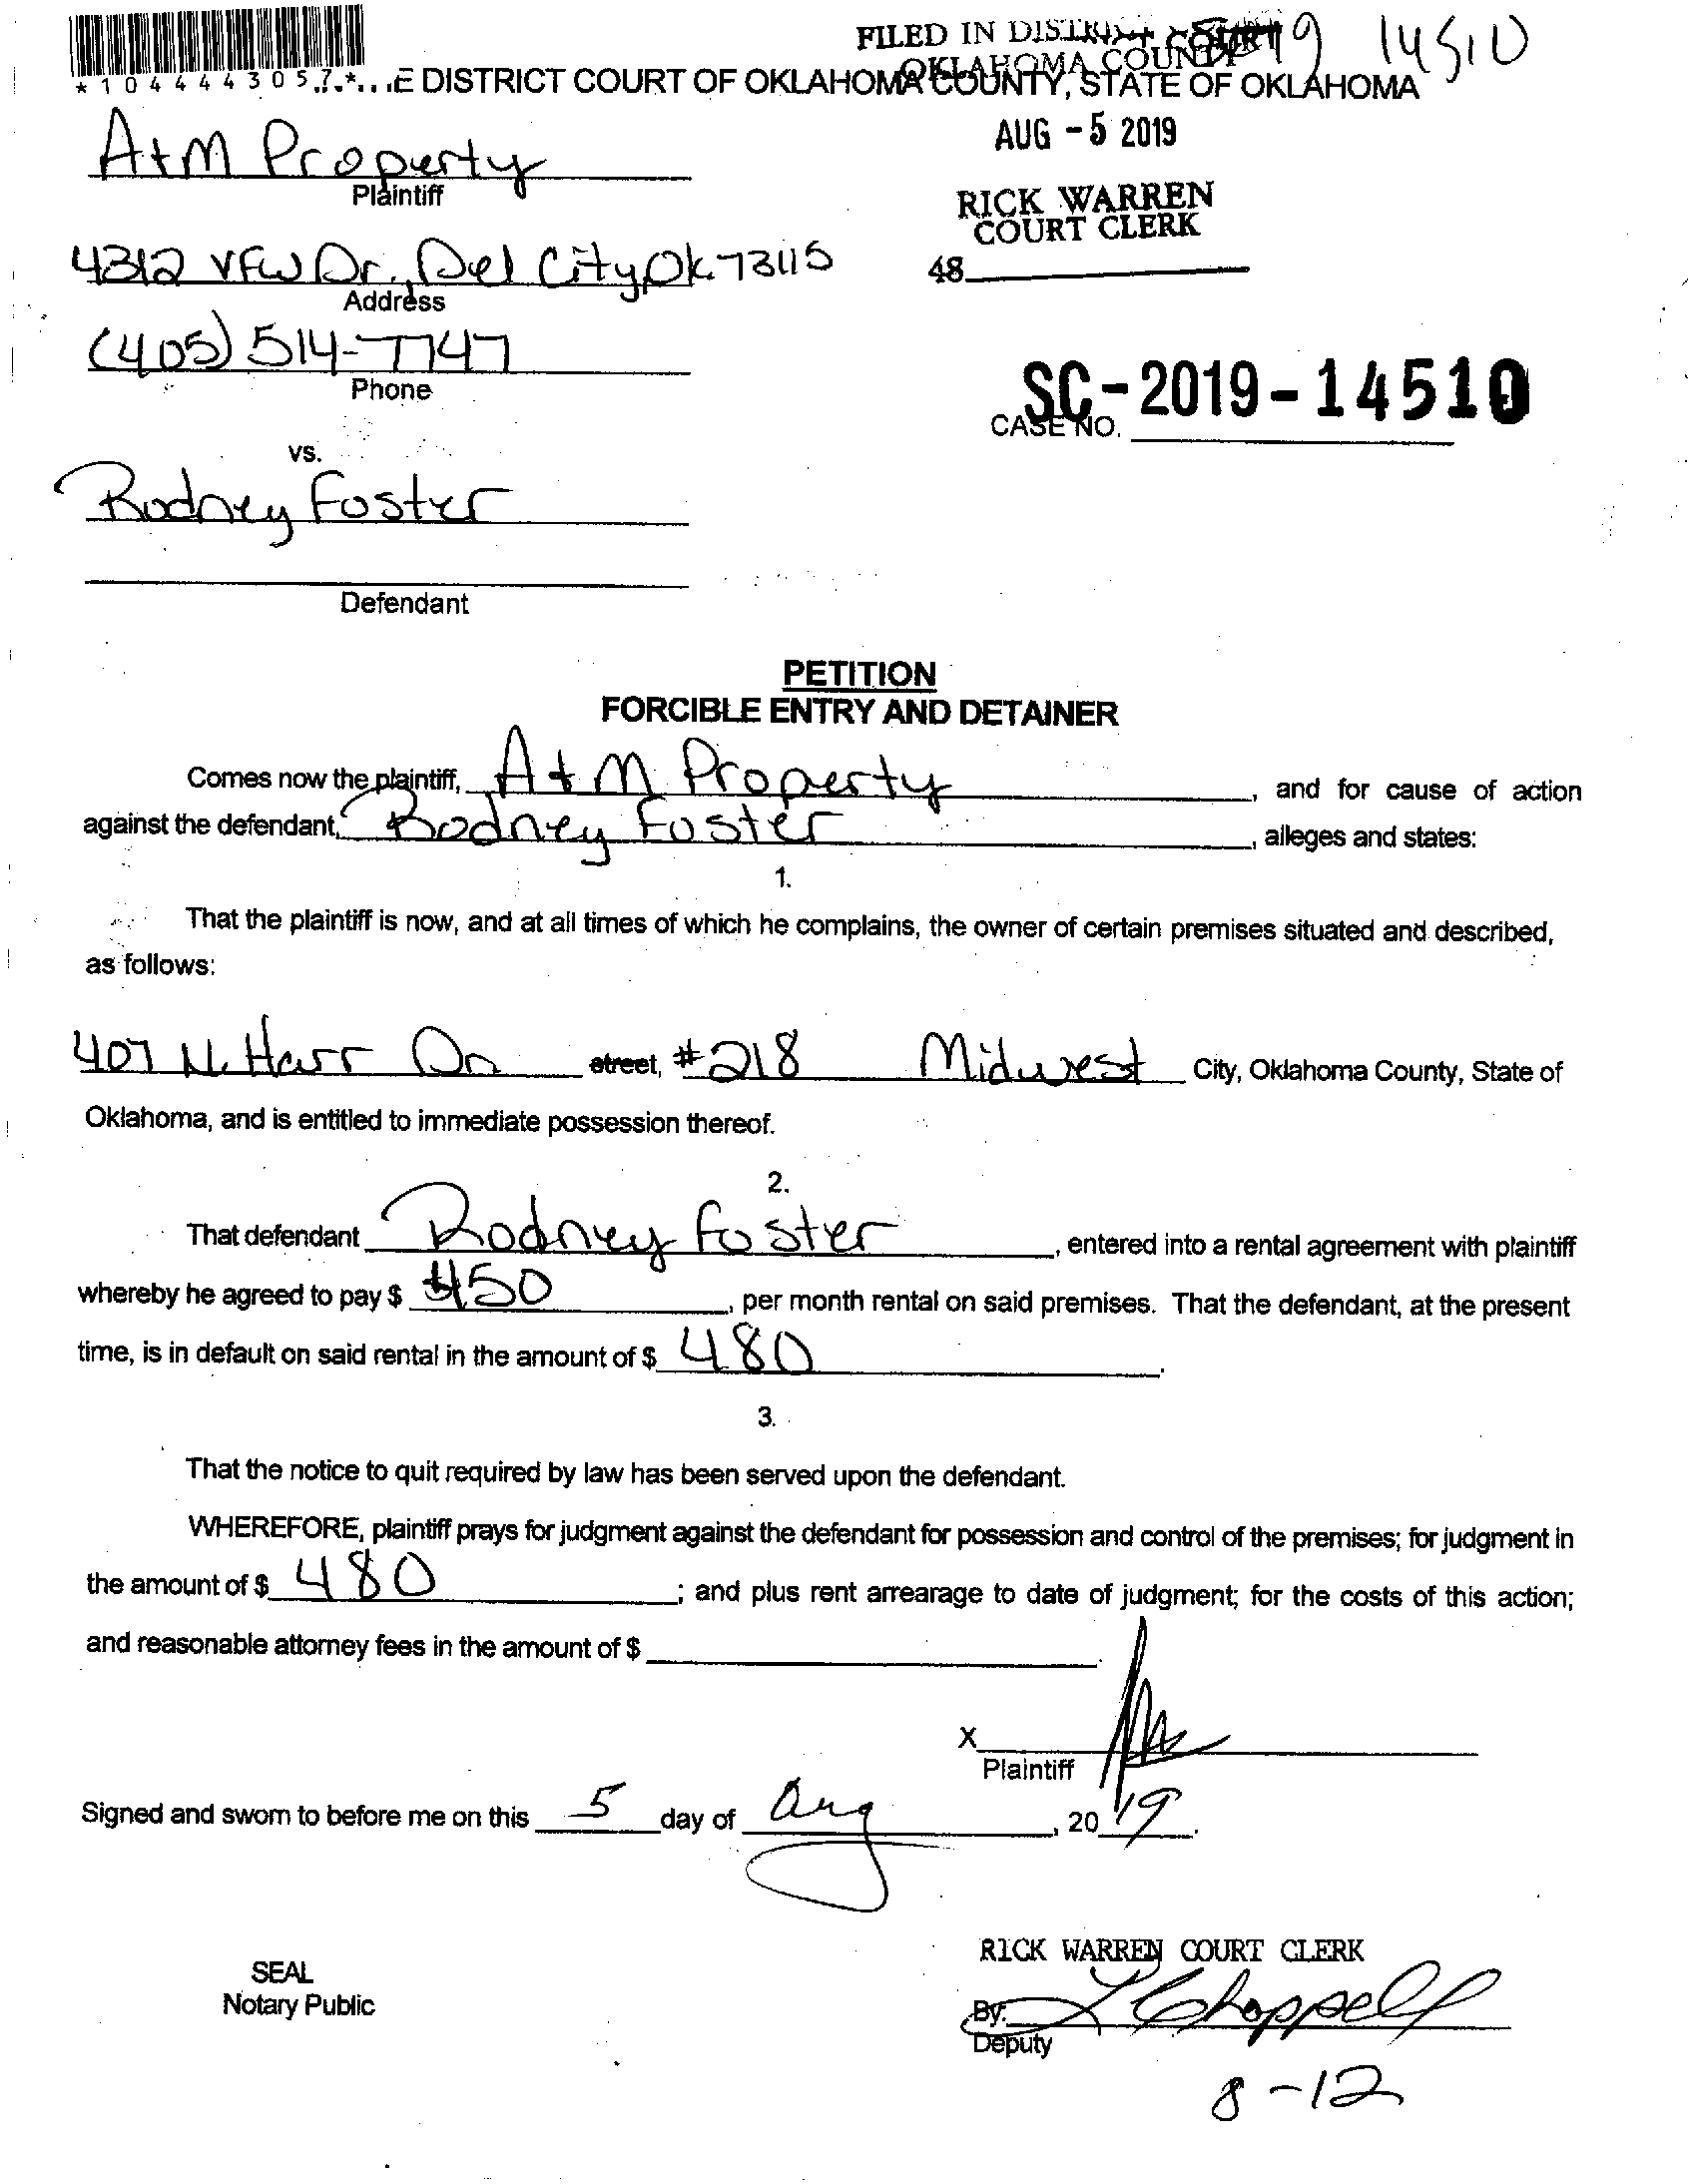 FILED IN DISTRICT COURT
OKLAHOMA COUNTY
19 14510
*1044443057*
E DISTRICT COURT OF OKLAHOMA COUNTY, STATE OF OKLAHOMA
AUG -5 2019
A+M Property
Plaintiff
RICK WARREN
COURT CLERK
4312 VFW Dr. Del City, Ok. 73115
48
Address
(405) 514-7747
Phone
SC-2019-14510
CASE NO.
vs.
Rodney Foster
Defendant
PETITION
FORCIBLE ENTRY AND DETAINER
Comes now the plaintiff, A+M Property, and for cause of action
against the defendant, Rodney Foster, alleges and states:
1.
That the plaintiff is now, and at all times of which he complains, the owner of certain premises situated and described,
as follows:
407 N. Harr Dr street, #218 Midwest City, Oklahoma County, State of
Oklahoma, and is entitled to immediate possession thereof.
2.
That defendant Rodney Foster, entered into a rental agreement with plaintiff
whereby he agreed to pay $ 450, per month rental on said premises. That the defendant, at the present
time, is in default on said rental in the amount of $ 480.
3.
That the notice to quit required by law has been served upon the defendant.
WHEREFORE, plaintiff prays for judgment against the defendant for possession and control of the premises; for judgment in
the amount of $ 480; and plus rent arrearage to date of judgment; for the costs of this action;
and reasonable attorney fees in the amount of $
X
Plaintiff
Signed and sworn to before me on this 5 day of Aug, 20 19.
RICK WARREN COURT CLERK
SEAL
Notary Public
By: L Chappell
Deputy
8-12